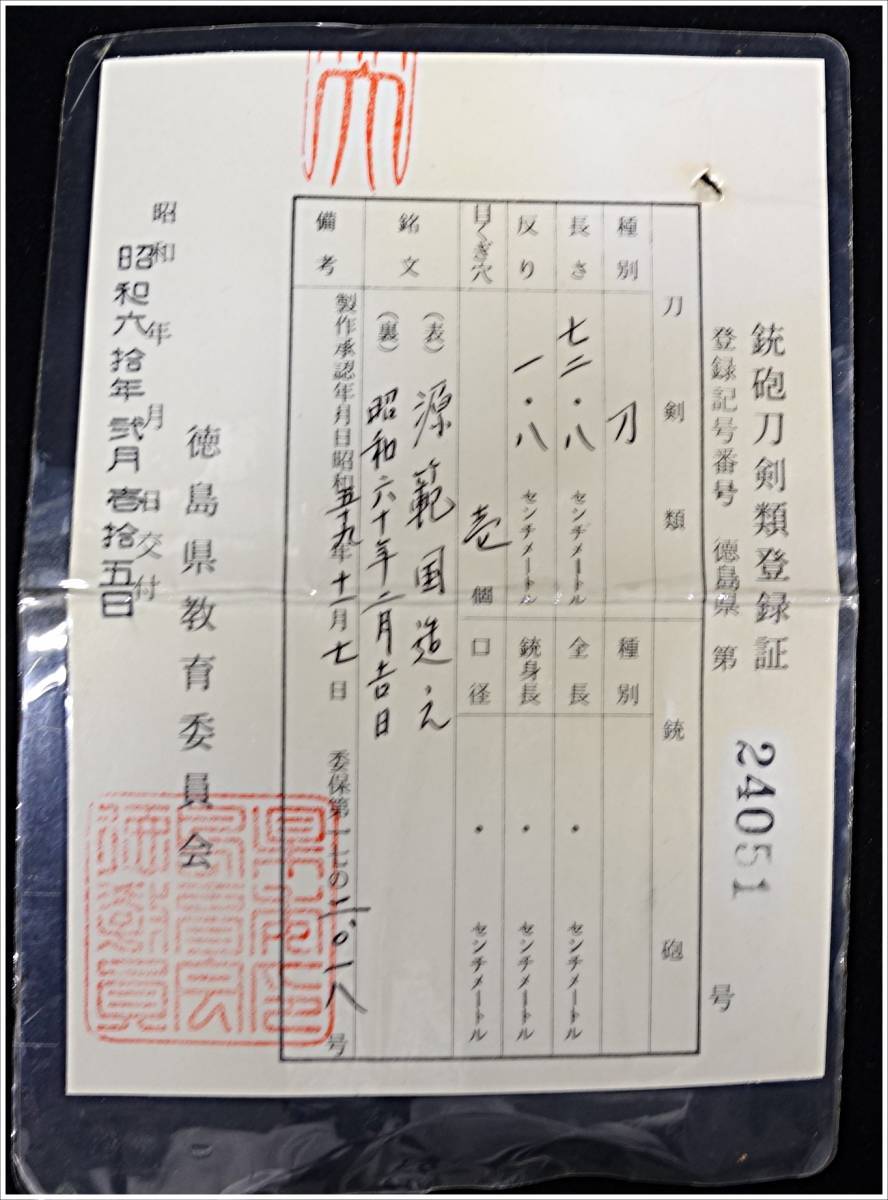 銃砲刀剣類登録証
登録記号番号 徳島県 第 24051 号
刀剣類
銃砲
種別 刀
種別
長さ 七二・八 センチメートル
全長 ・ センチメートル
反り 一・八 センチメートル
銃身長 ・ センチメートル
目くぎ穴 壱 個
口径 ・ センチメートル
銘文
(表) 源範国造之
(裏) 昭和六十年二月吉日
備考
製作承認年月日昭和五十九年十一月七日 委保第 号
徳島県教育委員会
昭和 年 月 日交付
昭和六拾年弐月壱拾五日